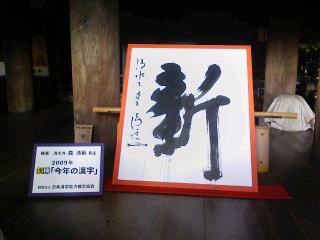 新
清水寺
揮毫 清水寺 森 清範 貫主
2009年
「今年の漢字」
財団法人 日本漢字能力検定協会